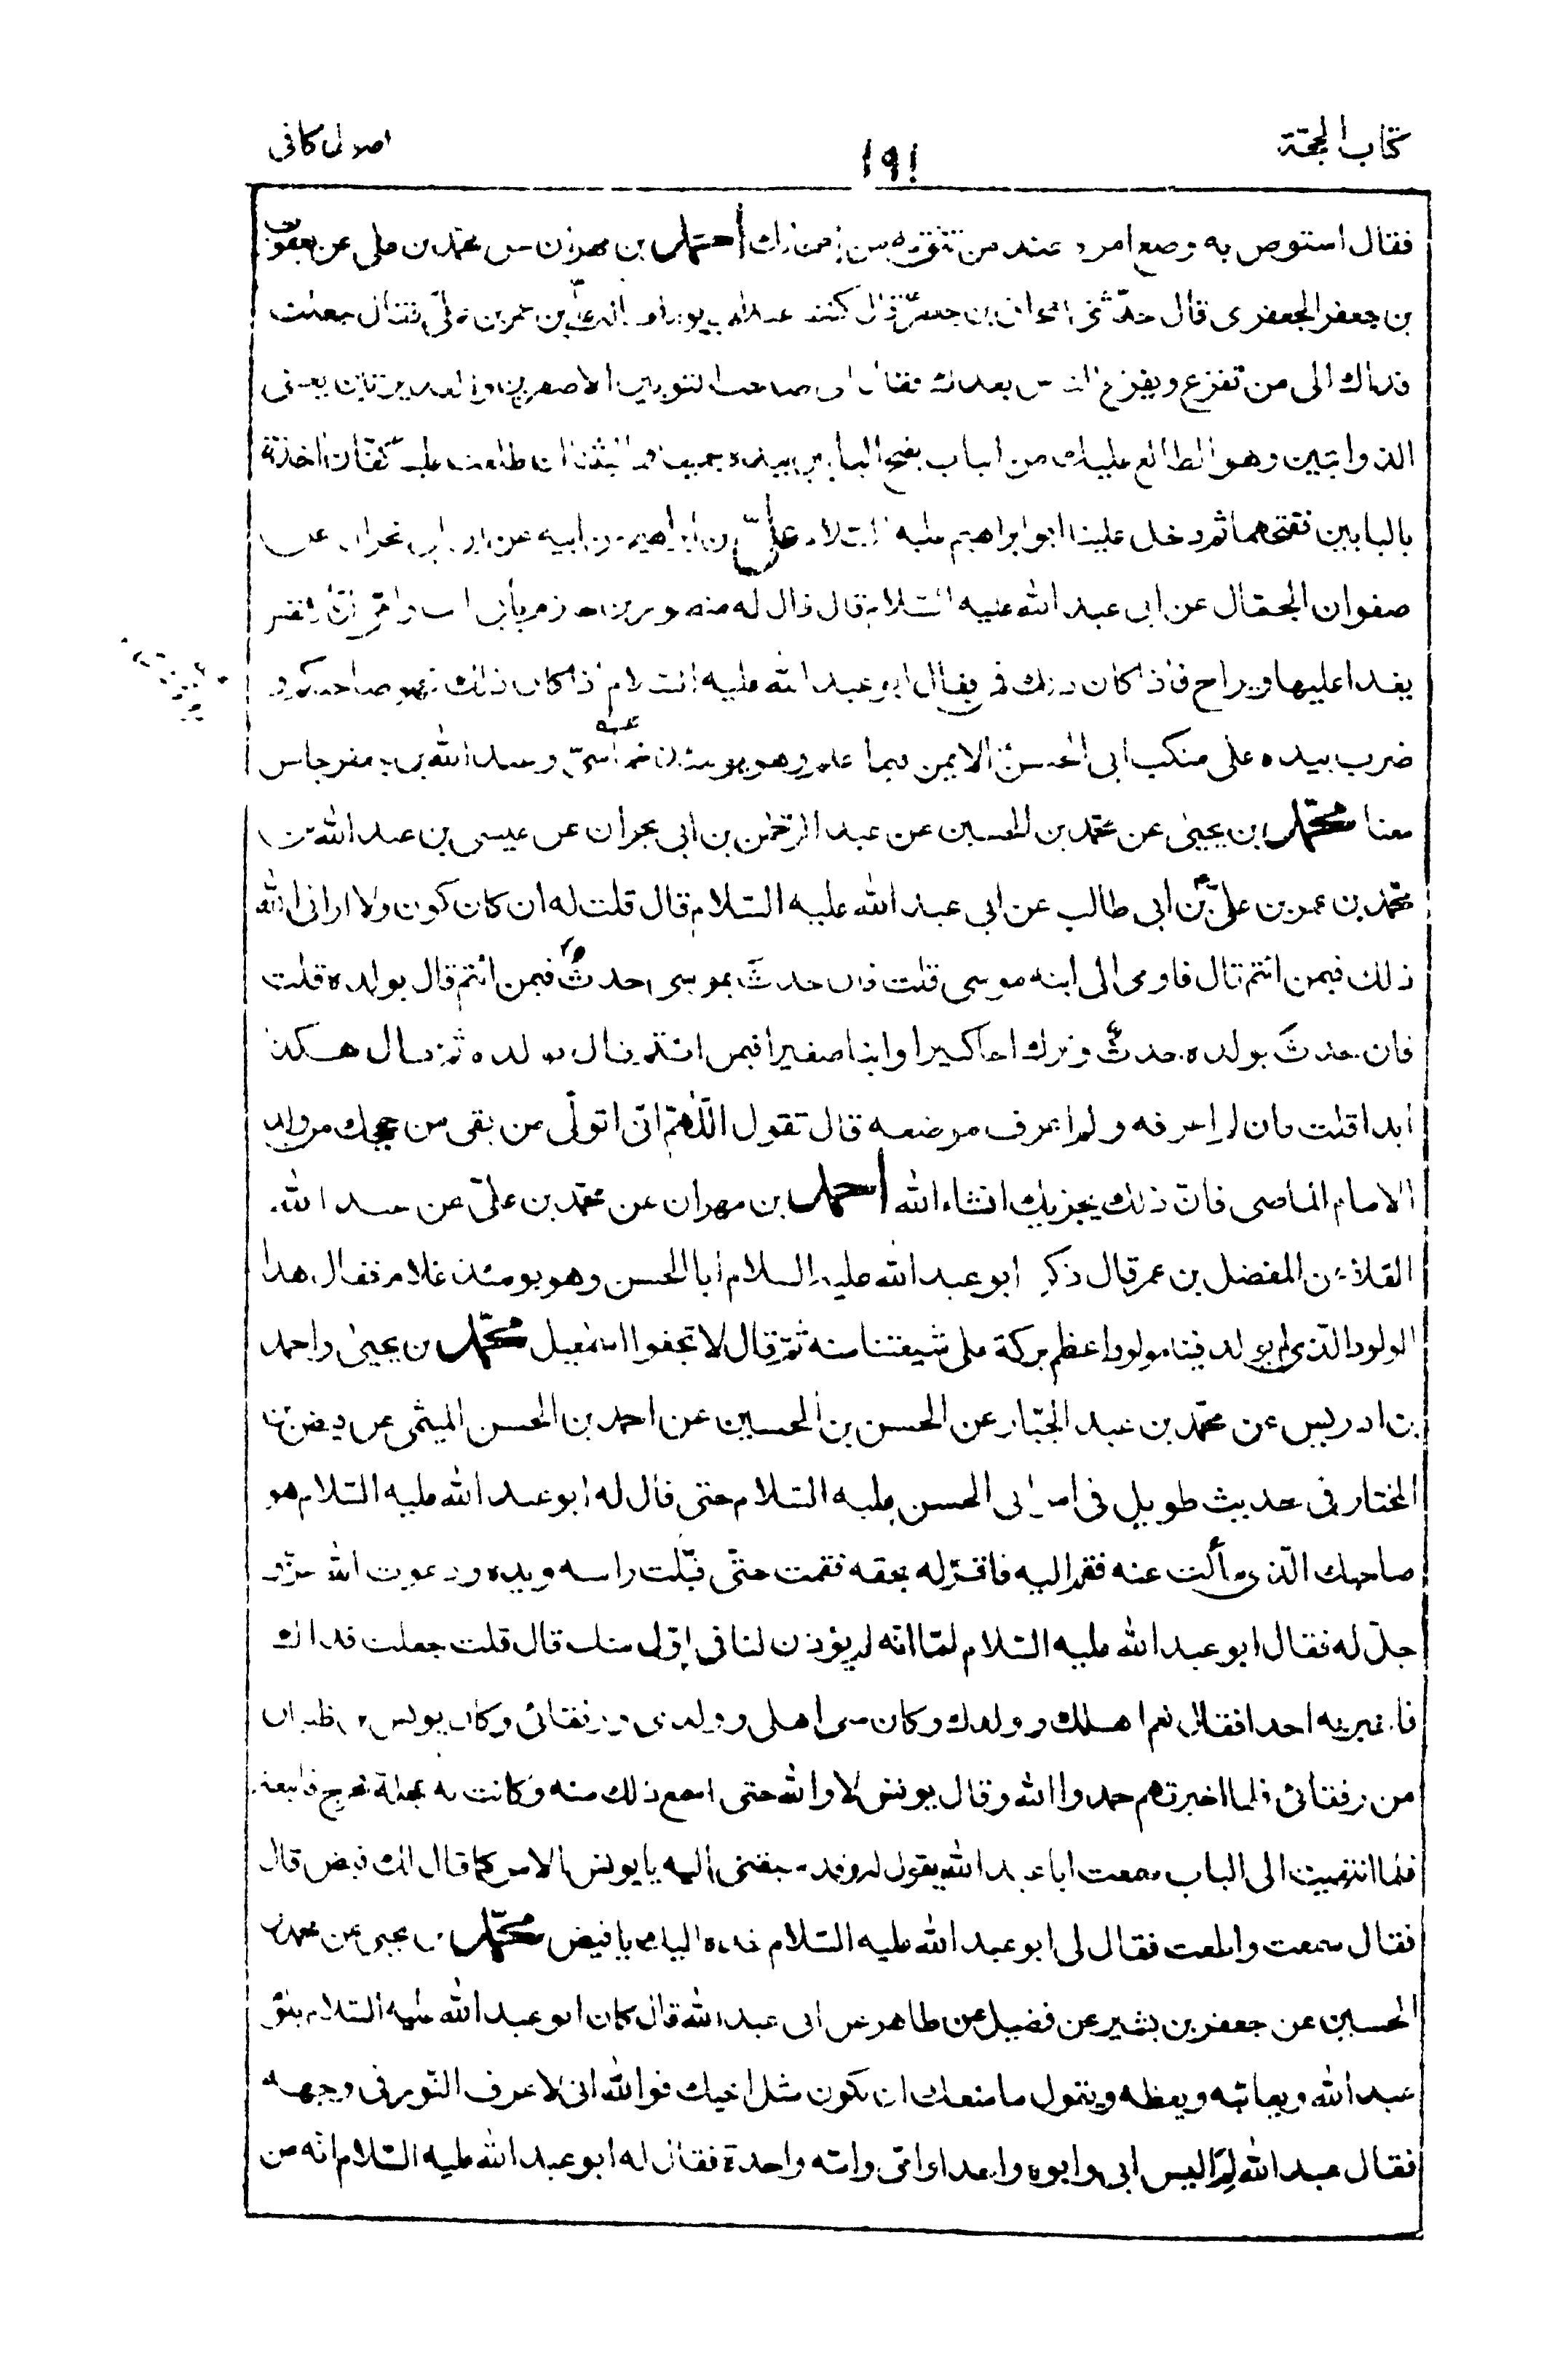 كتاب الحجة
١٩١
اصول كافى
فقال استوص به وضع امره عند من تثق به من احمد بن مهران عن محمد بن على عن يعقوب
بن جعفر الجعفرى قال حدّثنى اسحاق بن جعفر قال كنت عند ابى يوما فساله علىّ بن عمر بن علىّ فقال جعلت
فداك الى من نفزع ويفزع الناس بعدك فقال الى صاحب الثوبين الاصفرين والغديرتين يعنى
الذوابتين وهو الطالع عليك من الباب يفتح البابين بيده جميعا فما لبثنا ان طلعت علينا كفّان اخذة
بالبابين ففتحهما ثم دخل علينا ابو ابراهيم عليه السلام علىّ بن ابراهيم عن ابيه عن ابن ابى نجران عن
صفوان الجمّال عن ابى عبد الله عليه السّلام قال قال له منصور بن حازم بأبى انت وامّى انّ الانفس
يغدا عليها ويراح فاذا كان ذلك فمن فقال ابو عبد الله عليه السّلام اذا كان ذلك فهو صاحبكم و
ضرب بيده على منكب ابى الحسن الايمن فيما اعلم وهو يومئذ خماسىّ وعبد الله بن جعفر جالس
معنا محمّد بن يحيىٰ عن محمّد بن الحسين عن عبد الرّحمٰن بن ابى نجران عن عيسى بن عبد الله بن
محمّد بن عمر بن علىّ بن ابى طالب عن ابى عبد الله عليه السّلام قال قلت له ان كان كون ولا ارانى الله
ذلك فبمن ائتم قال فاومى الى ابنه موسى قلت فان حدث بموسى حدث فبمن ائتم قال بولده قلت
فان حدث بولده حدث وترك اخا كبيرا وابنا صغيرا فبمن ائتم قال بولده ثم قال هكذا
ابدا قلت فان لم اعرفه ولم اعرف موضعه قال تقول اللّٰهمّ انّى اتولّى من بقى من حججك من ولد
الامام الماضى فانّ ذلك يجزيك انشاء الله احمد بن مهران عن محمّد بن علىّ عن عبد الله
القلاء عن المفضل بن عمر قال ذكر ابو عبد الله عليه السلام ابا الحسن وهو يومئذ غلام فقال هذا
المولود الّذى لم يولد فينا مولود اعظم بركة على شيعتنا منه ثمّ قال لا تجفوا اسمٰعيل محمّد بن يحيىٰ واحمد
بن ادريس عن محمّد بن عبد الجبّار عن الحسن بن الحسين عن احمد بن الحسن الميثمى عن فيض بن
المختار فى حديث طويل فى امر ابى الحسن عليه السّلام حتى قال له ابو عبد الله عليه السّلام هو
صاحبك الّذى سألت عنه فقم اليه فاقرّ له بحقه فقمت حتّى قبّلت راسه ويده ودعوت الله عزّ و
جلّ له فقال ابو عبد الله عليه السّلام امّا انّه لم يؤذن لنا فى اوّل منك قال قلت جعلت فداك
فاخبر به احدا فقال نعم اهلك وولدك وكان معى اهلى وولدى ورفقائى وكان يونس بن ظبيان
من رفقائى فلما اخبرتهم حمدوا الله وقال يونس لا والله حتى اسمع ذلك منه وكانت به عجلة فخرج فاتبعته
فلما انتهيت الى الباب سمعت ابا عبد الله يقول له وقد سبقنى اليه يا يونس الامر كما قال لك فيض قال
فقال سمعت واطعت فقال لى ابو عبد الله عليه السّلام خذه اليك يا فيض محمّد بن يحيى عن محمد بن
الحسين عن جعفر بن بشير عن فضيل عن طاهر عن ابى عبد الله قال كان ابو عبد الله عليه السّلام يلوم
عبد الله ويعاتبه ويعظه ويقول ما منعك ان تكون مثل اخيك فوالله انى لاعرف النّور فى وجهه
فقال عبد الله لم اليس ابى وابوه واحدا وامّى وامّه واحدة فقال له ابو عبد الله عليه السّلام انّه من